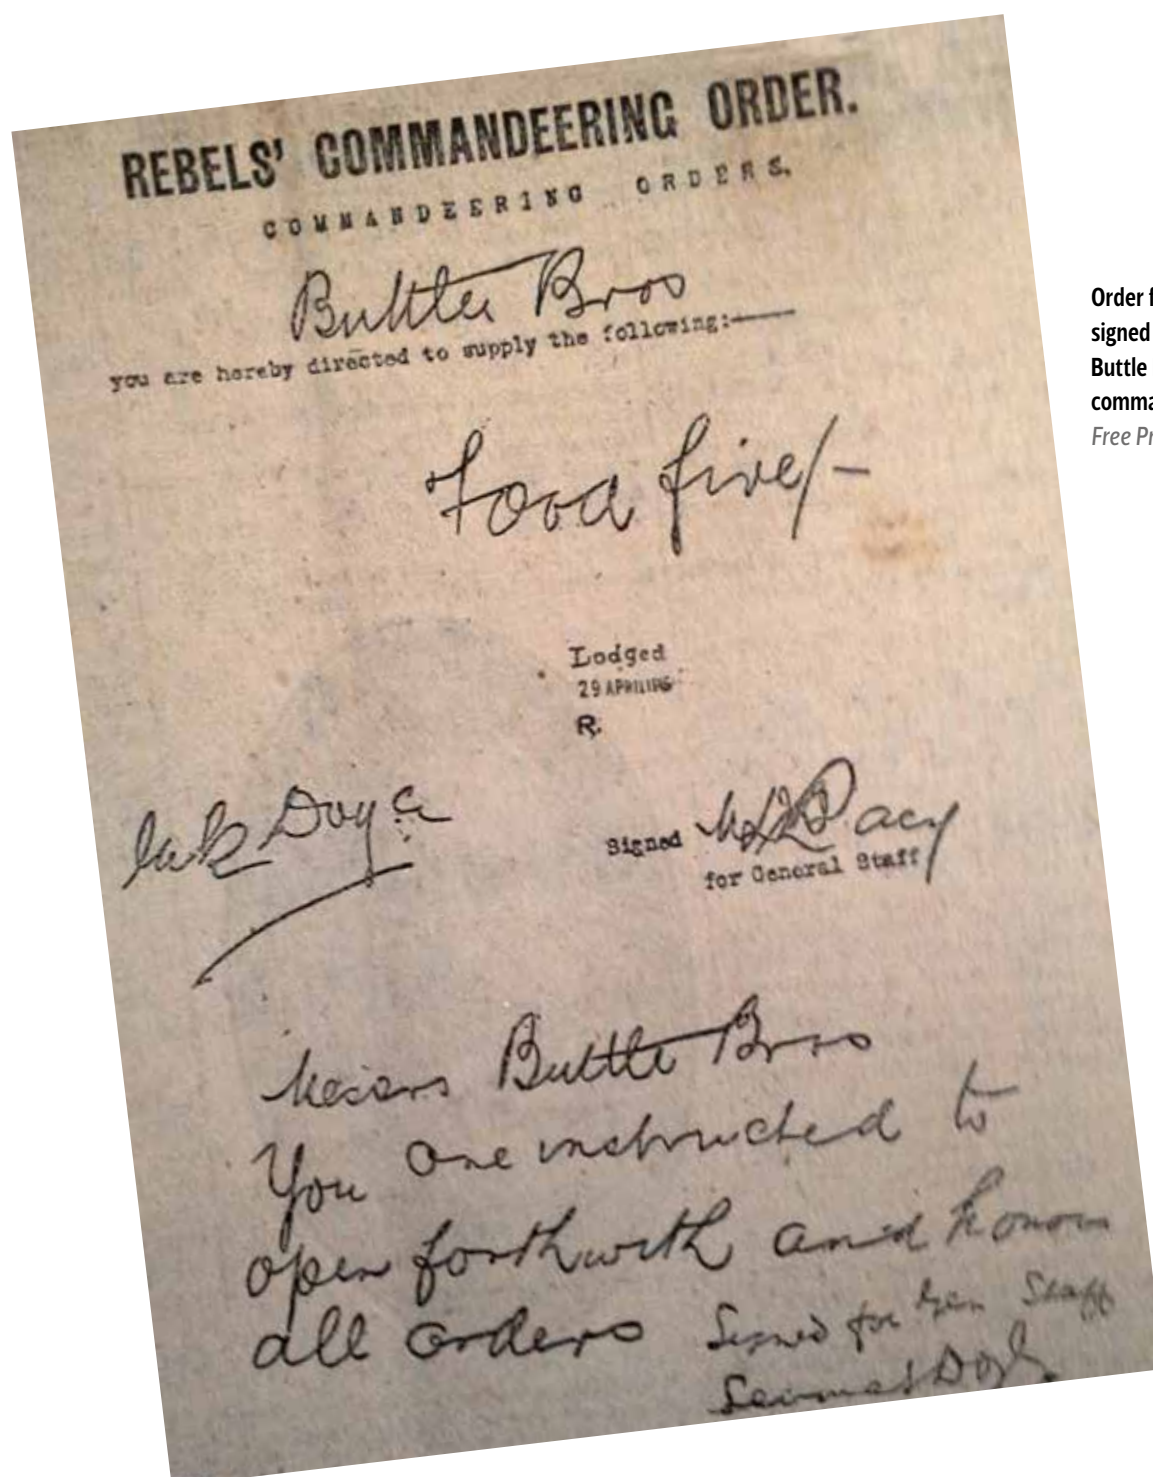 REBELS' COMMANDEERING ORDER.
COMMANDEERING ORDERS.
Buttle Bros
you are hereby directed to supply the following:—
Food five/-
Lodged
29 APRIL
R.
Doyle
Signed Pacy
for General Staff
Messrs Buttle Bros
You are instructed to
open forthwith and honour
all orders
Signed for Gen Staff
Seumas Doyle
Order f
signed
Buttle
comma
Free Pr